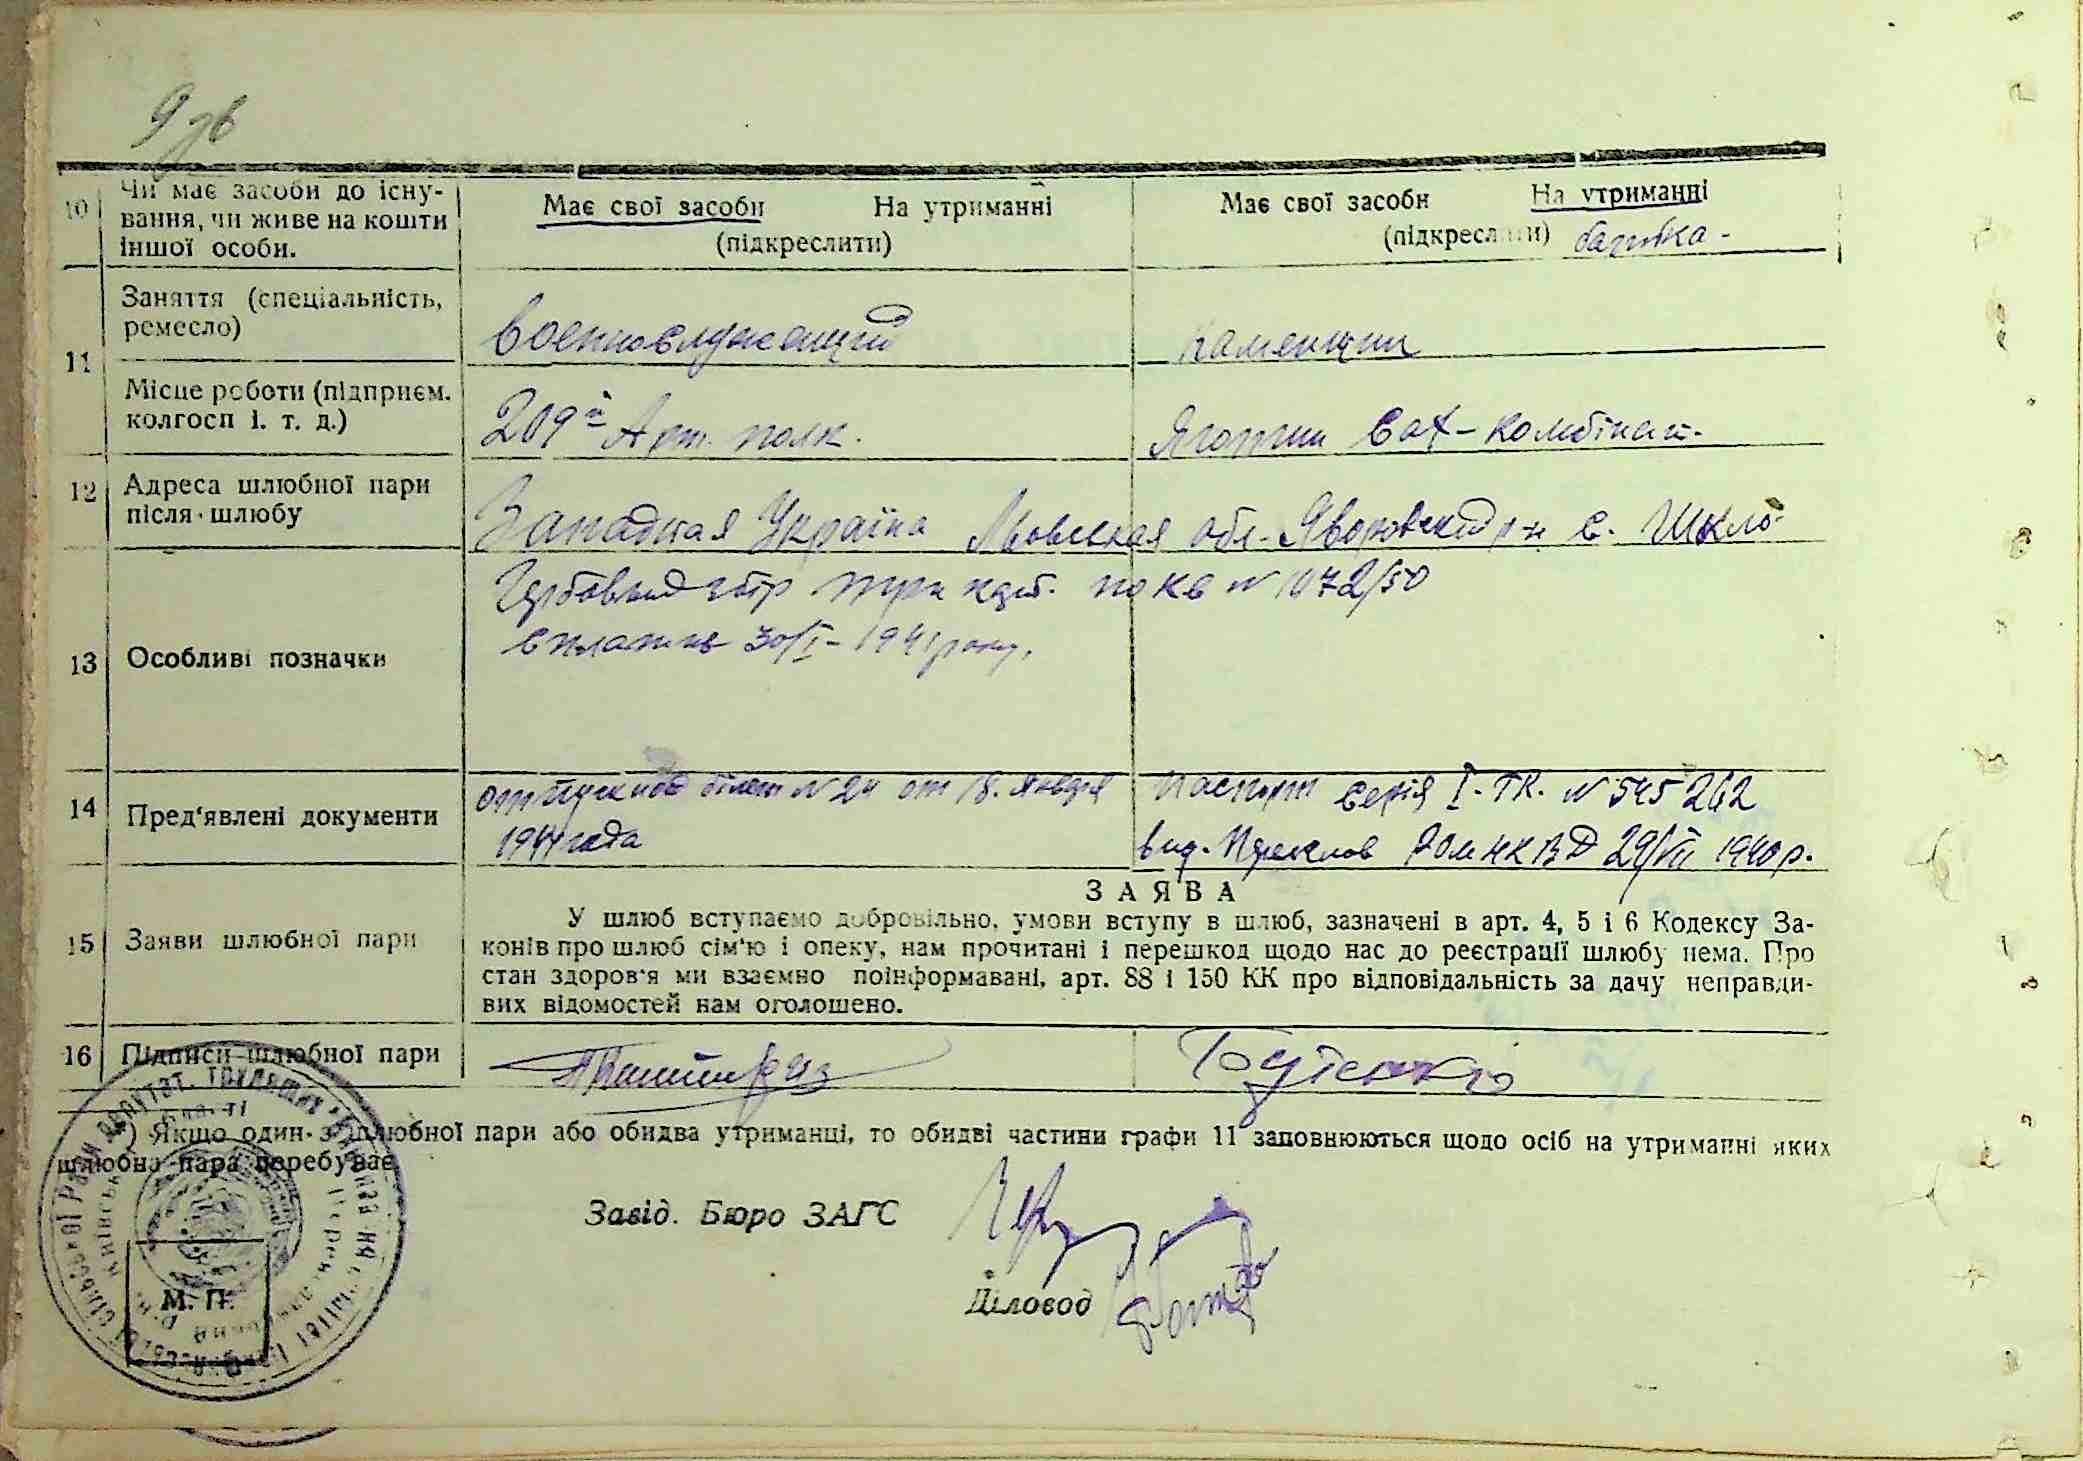 9 зв
10 Чи має засоби до існу-
вання, чи живе на кошти
іншої особи.
Має свої засоби На утриманні
(підкреслити)
Має свої засоби На утриманні
(підкреслити) батька -
11
Заняття (спеціальність,
ремесло)
военнослужащий
каменщик
Місце роботи (підприєм.
колгосп і. т. д.)
209й Арт. полк.
Яготин Сах-комбінат.
12 Адреса шлюбної пари
після шлюбу
Западная Україна Львовская обл. Яворовский р-н с. Шкло
13 Особливі позначки
Гербовый збір три крб. по кв N 1072/50
сплатив 30/I - 1941 року.
14 Пред'явлені документи
отпускной білет N 24 от 18. Января
1941 года
Паспорт серія I-ТК. N 545262
вид. РОМ НКВД 29/VII 1940 р.
15 Заяви шлюбної пари
ЗАЯВА
У шлюб вступаємо добровільно, умови вступу в шлюб, зазначені в арт. 4, 5 і 6 Кодексу За-
конів про шлюб сім'ю і опеку, нам прочитані і перешкод щодо нас до реєстрації шлюбу нема. Про
стан здоров'я ми взаємно поінформавані, арт. 88 і 150 КК про відповідальність за дачу неправди-
вих відомостей нам оголошено.
16 Підписи шлюбної пари
) Якщо один з шлюбної пари або обидва утриманці, то обидві частини графи 11 заповнюються щодо осіб на утриманні яких
шлюбна пара перебуває
Завід. Бюро ЗАГС
Діловод
М. П.